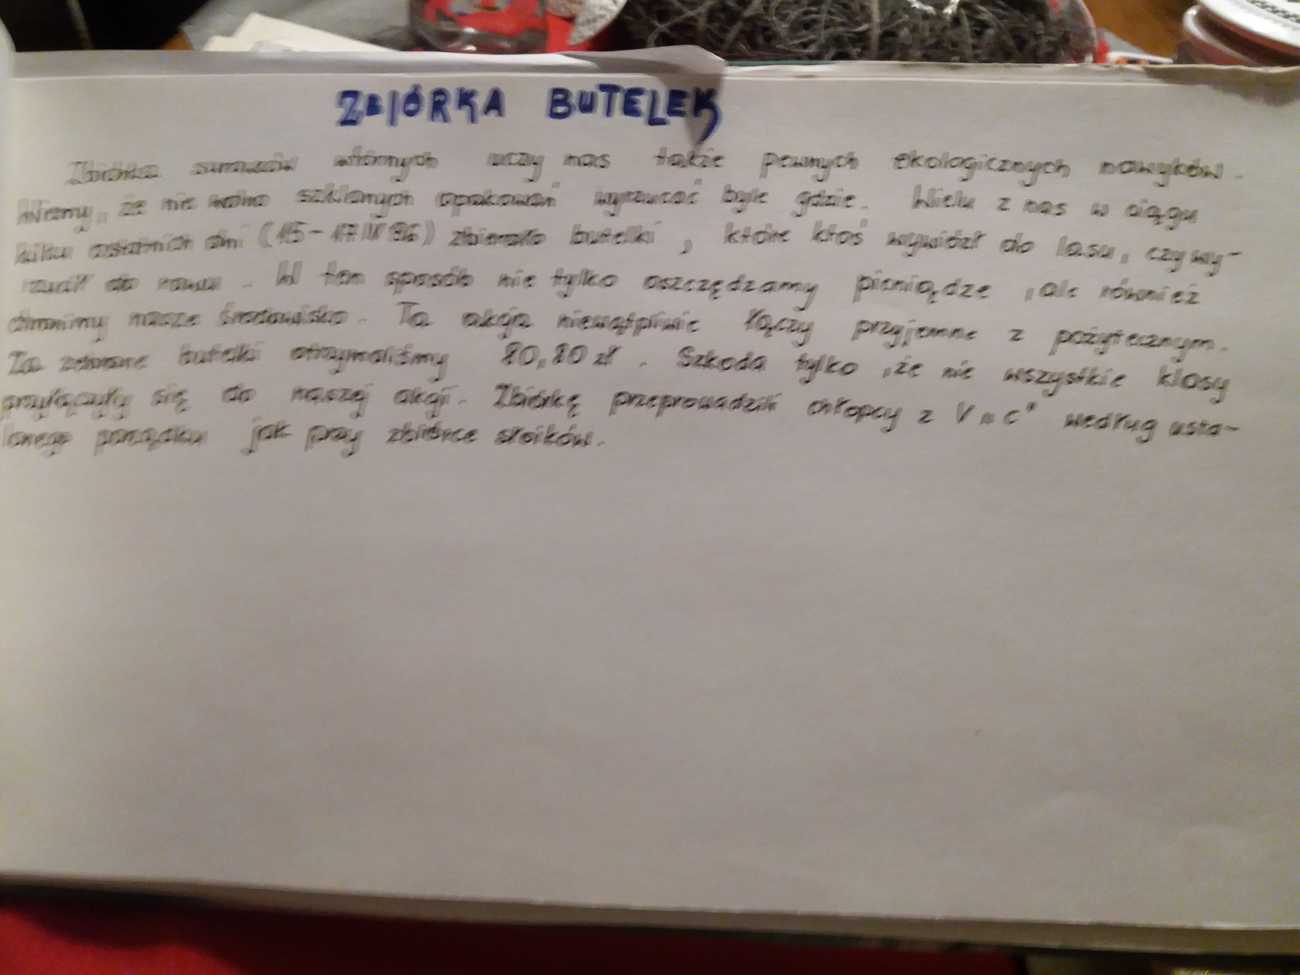 ZBIÓRKA BUTELEK
Zbiórka surowców wtórnych uczy nas także pewnych ekologicznych nawyków.
Wiemy, że nie wolno szklanych opakowań wyrzucać byle gdzie. Wielu z nas w ciągu
kilku ostatnich dni (15-17 96) zbierało butelki, które ktoś wywiózł do lasu, czy wy-
rzucił do rowu. W ten sposób nie tylko oszczędzamy pieniądze, ale również
chronimy nasze środowisko. Ta akcja niewątpliwie łączy przyjemne z pożytecznym.
Za zebrane butelki otrzymaliśmy 80,80 zł. Szkoda tylko, że nie wszystkie klasy
przyłączyły się do naszej akcji. Zbiórkę przeprowadzili chłopcy z V "c" według usta-
lonego porządku jak przy zbiórce słoików.